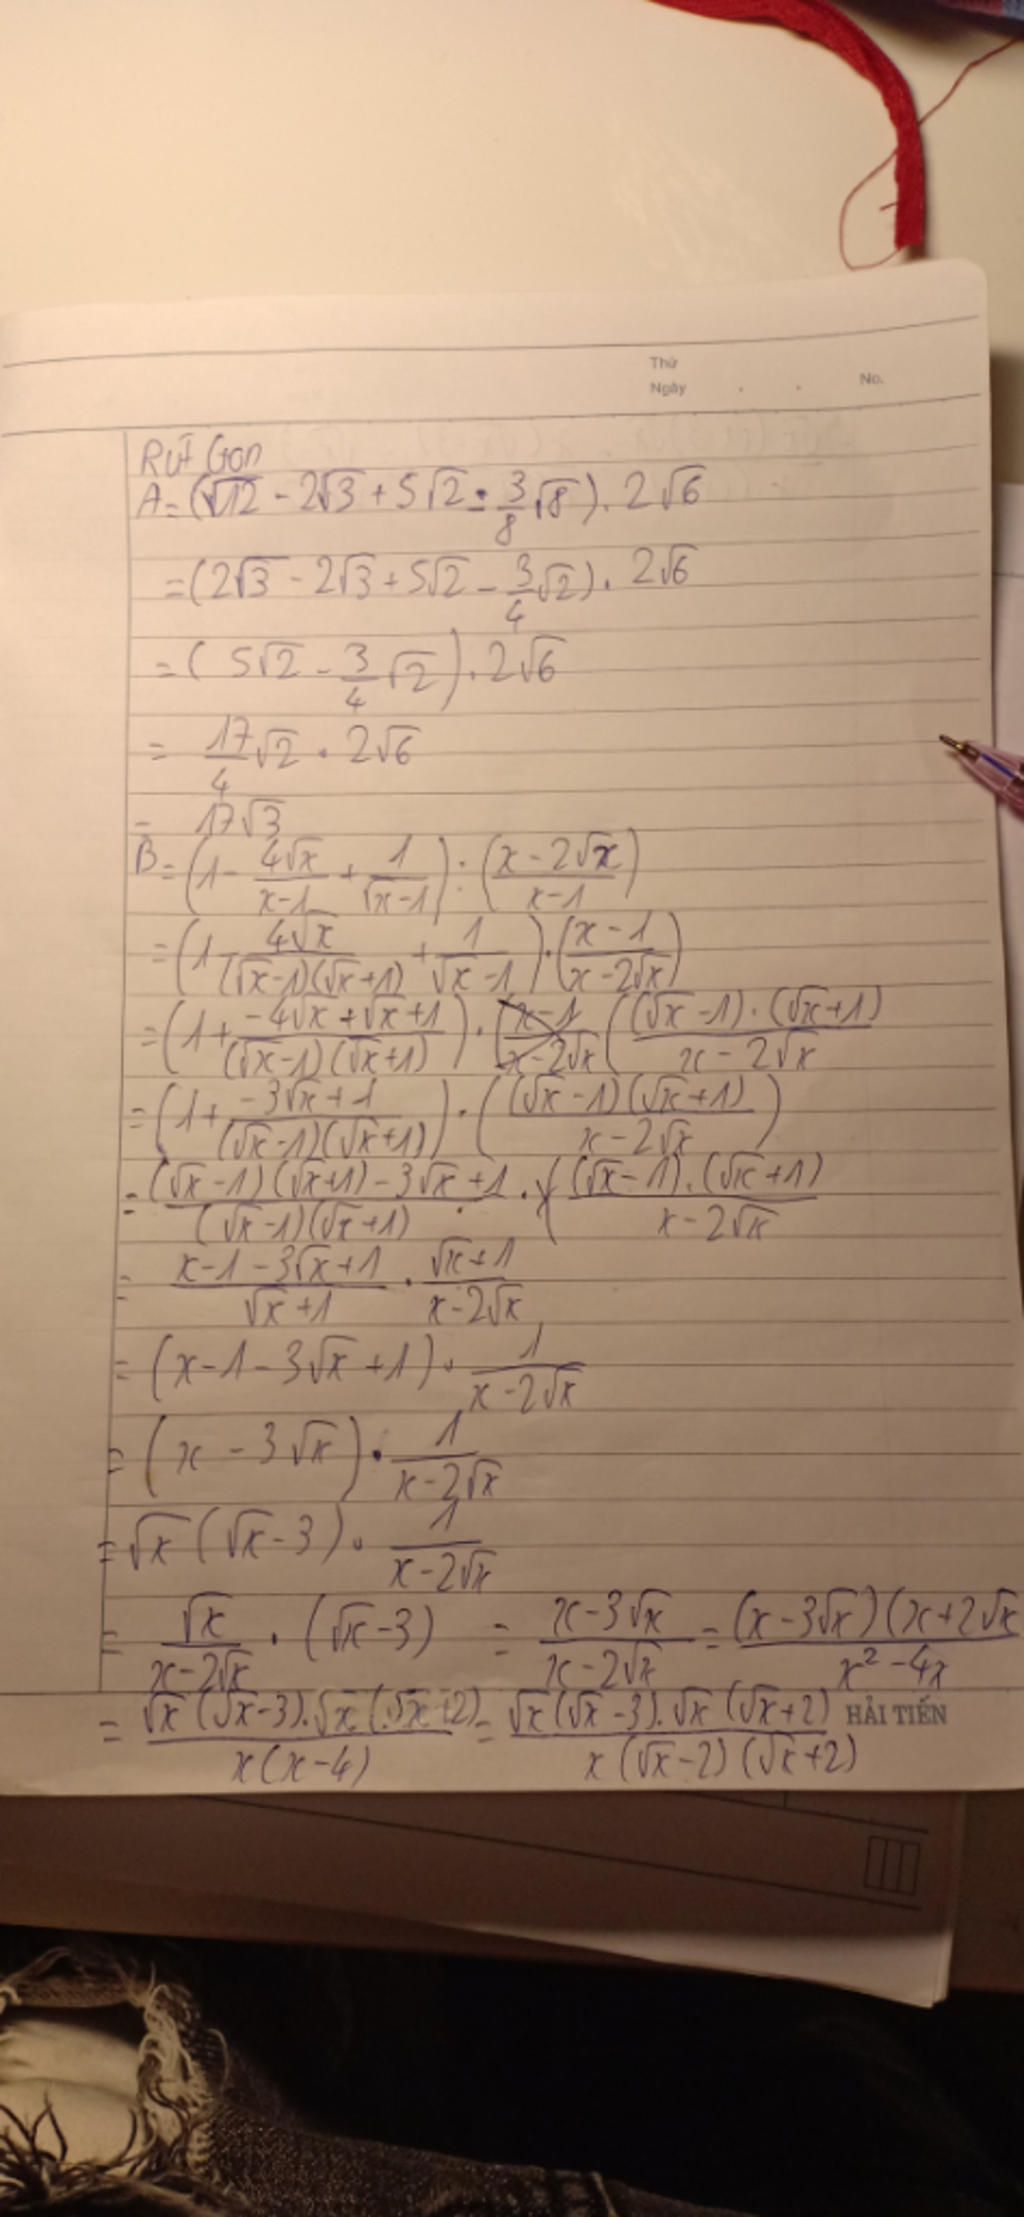 Thứ
Ngày . . No.
Rút Gọn
A = (√12 - 2√3 + 5√2 - 3/8 √8) . 2√6
= (2√3 - 2√3 + 5√2 - 3/4 √2) . 2√6
= ( 5√2 - 3/4 √2 ) . 2√6
= 17/4 √2 . 2√6
= 17√3
B = (1 - 4√x/(x-1) + 1/(√x-1)) : ((x - 2√x)/(x-1))
= (1 - 4√x/((√x-1)(√x+1)) + 1/(√x-1)) . ((x-1)/(x-2√x))
= (1 + (-4√x+√x+1)/((√x-1)(√x+1))) . (((√x-1).(√x+1))/(x-2√x)
= (1 + (-3√x+1)/((√x-1)(√x+1))) . (((√x-1)(√x+1))/(x-2√x))
= ((√x-1)(√x+1)-3√x+1)/((√x-1)(√x+1)) . ((√x-1).(√x+1))/(x-2√x)
= (x-1-3√x+1)/(√x+1) . (√x+1)/(x-2√x)
= (x-1-3√x+1) . 1/(x-2√x)
= (x - 3√x) . 1/(x-2√x)
= √x (√x-3) . 1/(x-2√x)
= √x/(x-2√x) . (√x-3) = (x-3√x)/(x-2√x) = ((x-3√x)(x+2√x)/(x²-4x)
= (√x(√x-3).√x(√x+2))/(x(x-4)) = (√x(√x-3).√x(√x+2))/(x(√x-2)(√x+2))
HẢI TIẾN